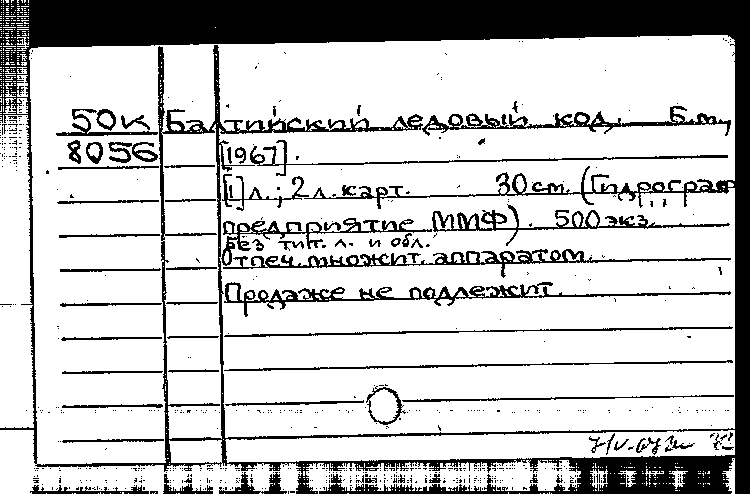 50к Балтийский ледовый код. Б.м.,
8056 [1967].
[1] л.; 2 л. карт. 30 см. (Гидрограф
предприятие ММФ). 500 экз.
Без тит. л. и обл.
Отпеч. множит. аппаратом.
Продаже не подлежит.